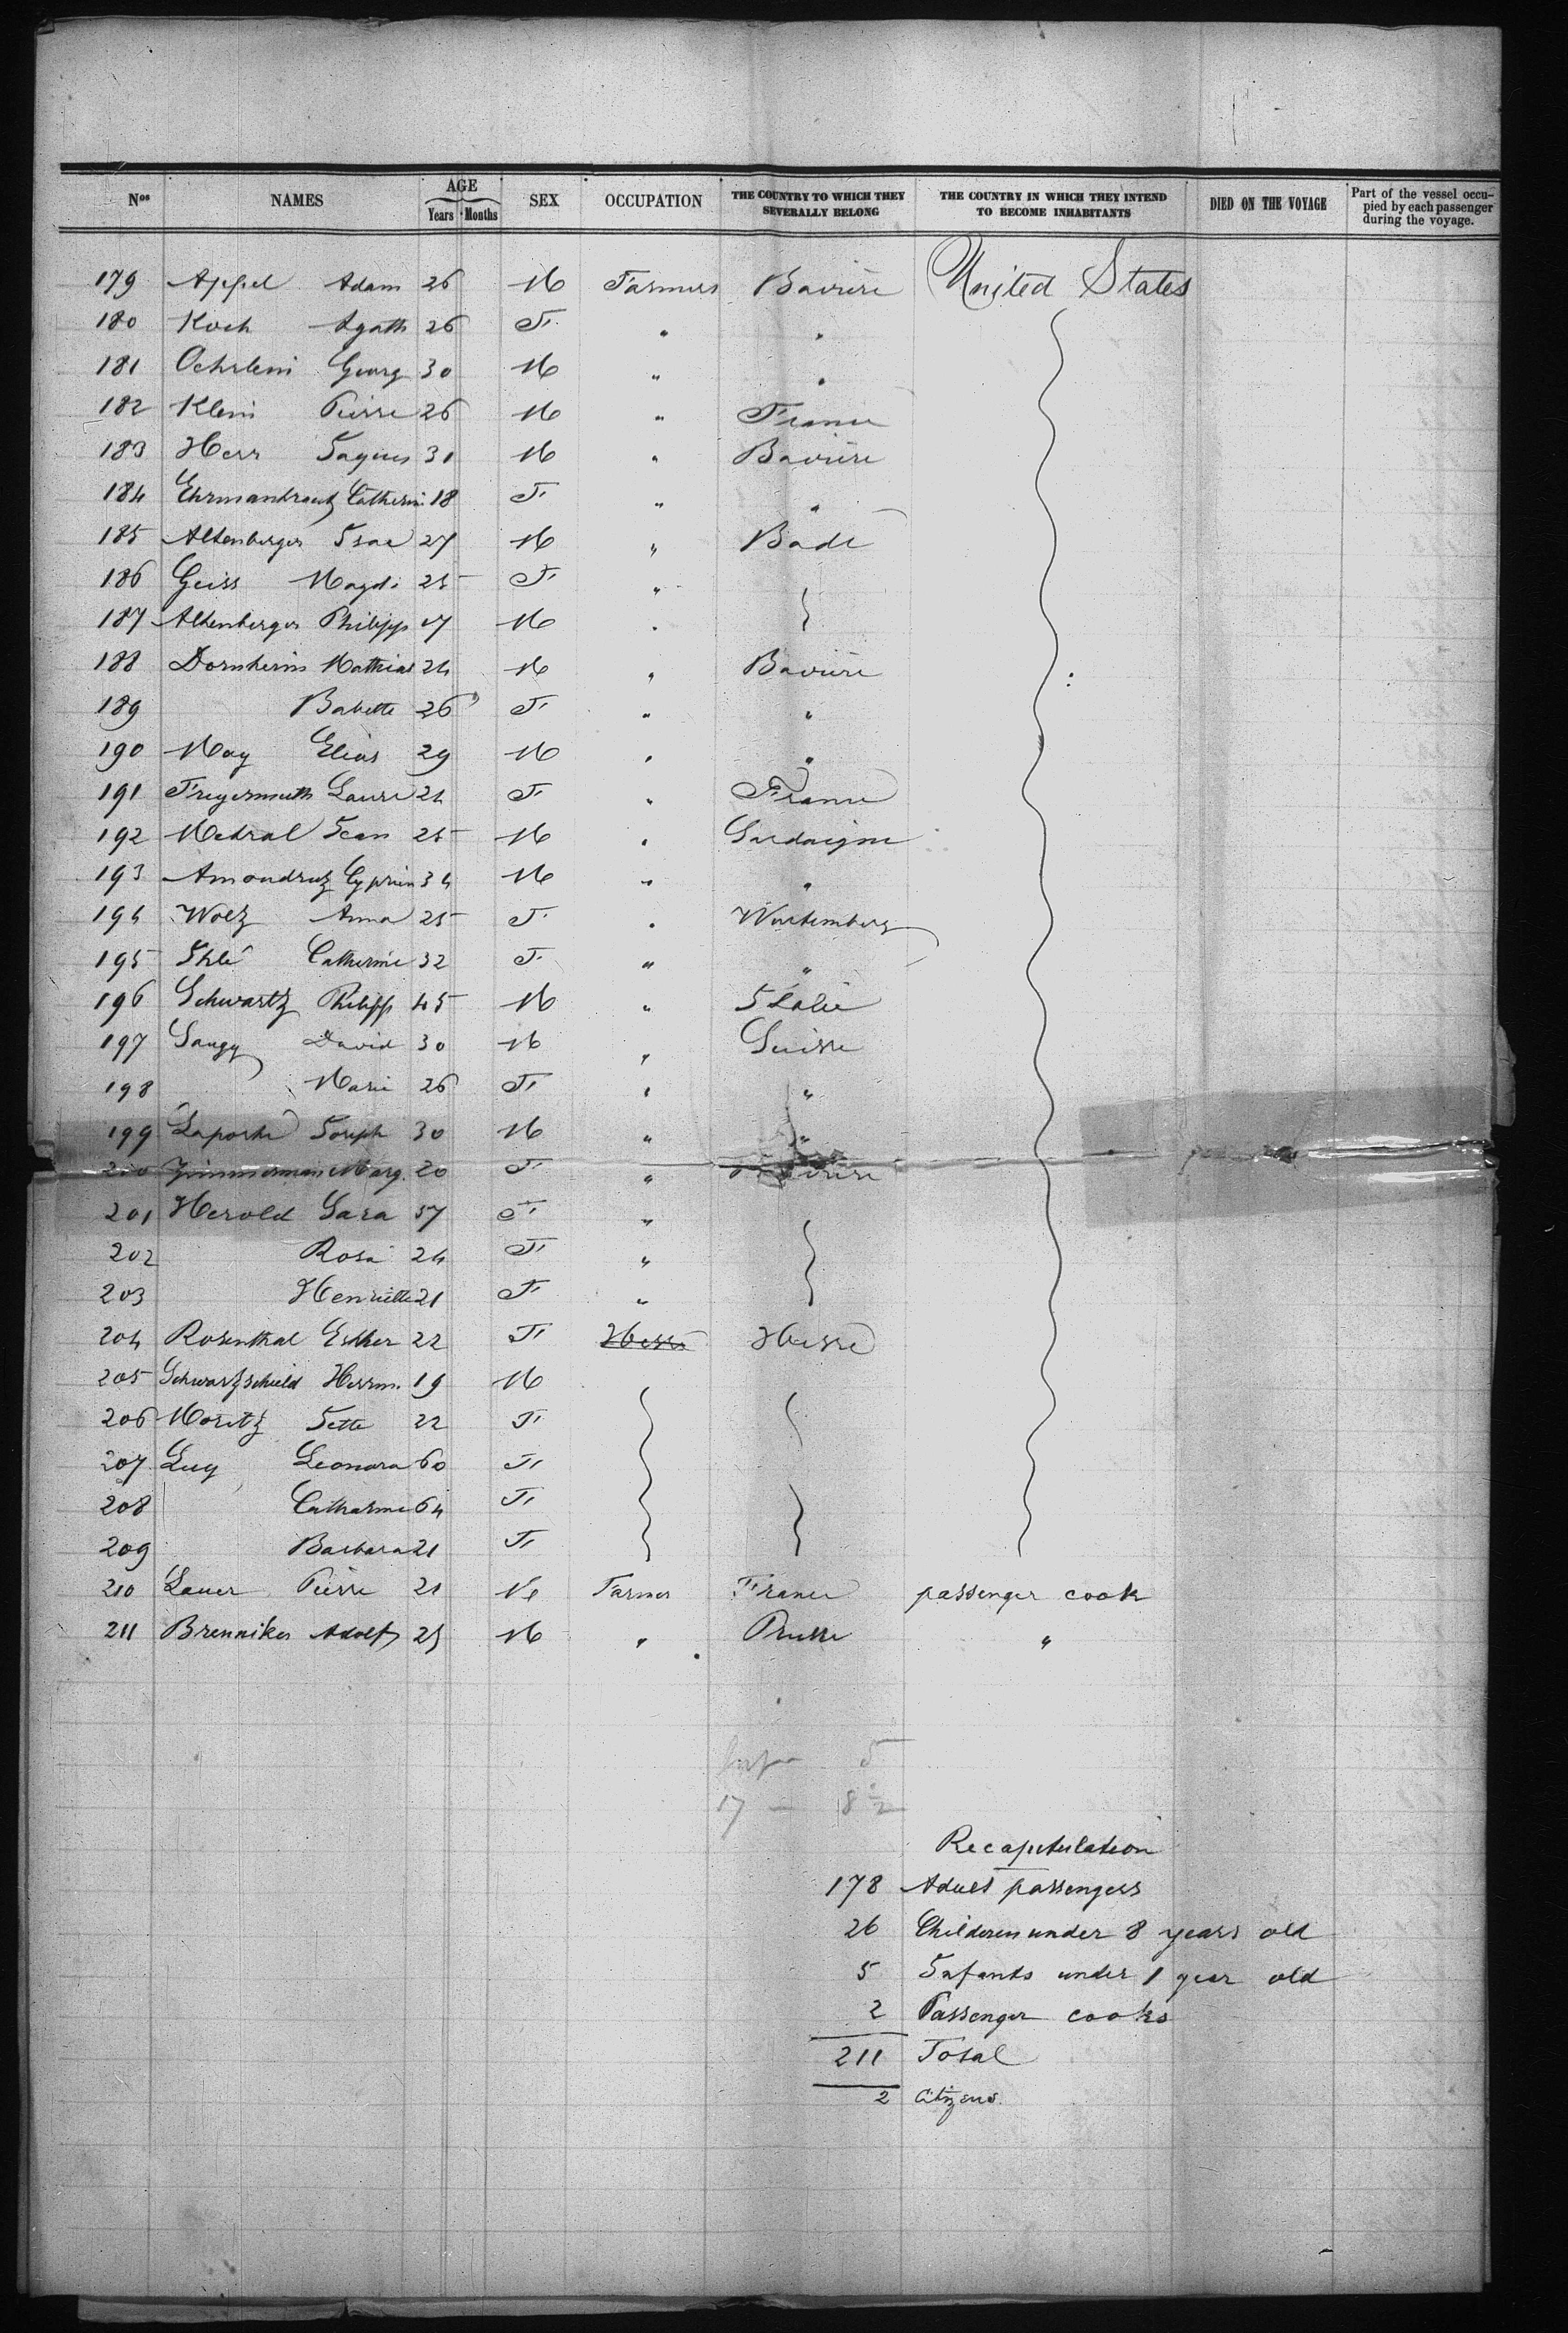 Nos NAMES AGE Years Months SEX OCCUPATION THE COUNTRY TO WHICH THEY SEVERALLY BELONG THE COUNTRY IN WHICH THEY INTEND TO BECOME INHABITANTS DIED ON THE VOYAGE Part of the vessel occupied by each passenger during the voyage.
179 Appel Adam 26 M Farmers Bavière United States
180 Koch Agath 26 F " "
181 Georg 30 M " "
182 Klein Pierre 26 M " France
183 Herr Jaques 31 M " Bavière
184 Ehrmantraut Catherin 18 F " "
185 Altenberger Isac 27 M " Bade
186 Geiss Magd. 25 F "
187 Altenberger Philipp 17 M "
188 Dornheim Mathias 24 M " Bavière
189 Babette 26 F " "
190 May Elias 29 M " "
191 Freyermuth Laure 24 F " France
192 Jean 25 M " Sardaigne
193 Amoudruz Cyprien 34 M " "
194 Wolz Anna 25 F " Wurtemberg
195 Ihlé Catherine 32 F " "
196 Schwartz Philipp 45 M " Italie
197 Saugy David 30 M " Suisse
198 Marie 26 F " "
199 Laporte Joseph 30 M " "
200 Zimmerman Marg. 20 F " Bavière
201 Herold Sara 57 F "
202 Rosa 24 F "
203 Henriette 21 F "
204 Rosenthal Esther 22 F Hesse Hesse
205 Schwartzschield Herrm. 19 M
206 Moritz Jette 22 F
207 Luy Leonora 60 F
208 Catharine 64 F
209 Barbara 21 F
210 Lauer Pierre 21 M Farmer France passenger cook
211 Brenniker Adolf 25 M " Prusse "
5
17 – 182
Recapitulation
178 Adult passengers
26 Children under 8 years old
5 Infants under 1 year old
2 Passenger cooks
211 Total
2 Citizens.